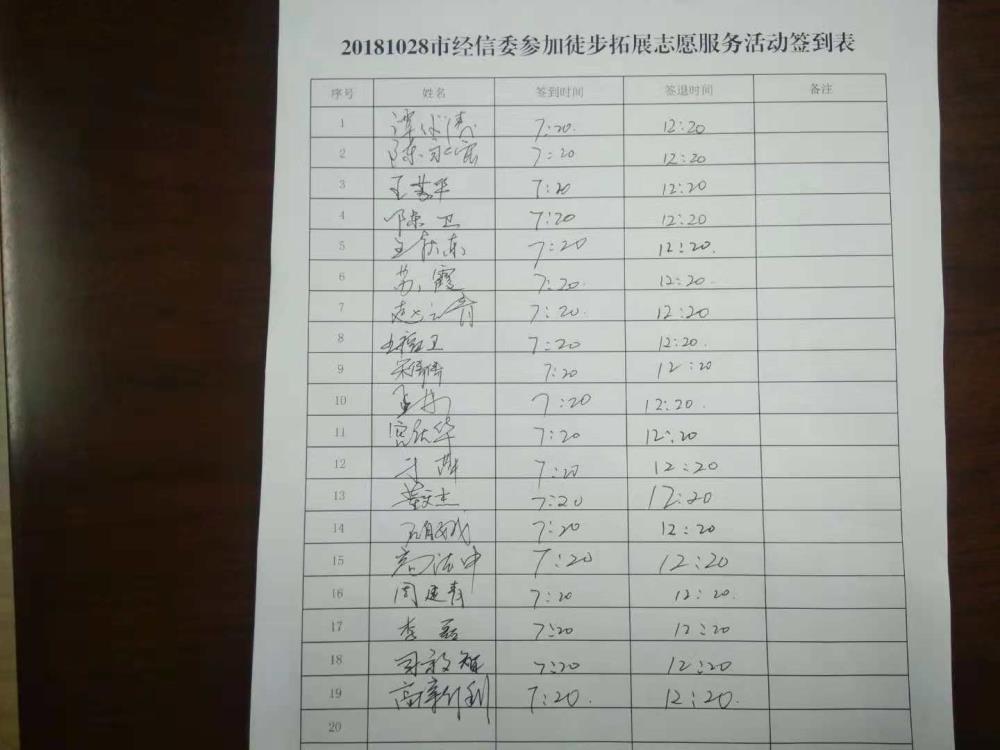 20181028市经信委参加徒步拓展志愿服务活动签到表
序号 姓名 签到时间 签退时间 备注
1 7:20. 12:20
2 陈 7:20 12:20
3 王 华 7:20 12:20
4 陈卫 7:20 12:20
5 王 东 7:20 12:20.
6 苏霞 7:20. 12:20.
7 赵 青 7:20. 12:20
8 卫 7:20 12:20.
9 宋倩倩 7:20 12:20
10 王 7:20 12:20.
11 华 7:20 12:20
12 于萍 7:20 12:20
13 黄文杰 7:20 12:20
14 7:20 12:20
15 高法中 7:20 12:20
16 周建青 7:20 12:20.
17 李磊 7:20 12:20
18 7:20 12:20
19 高 7:20. 12:20.
20